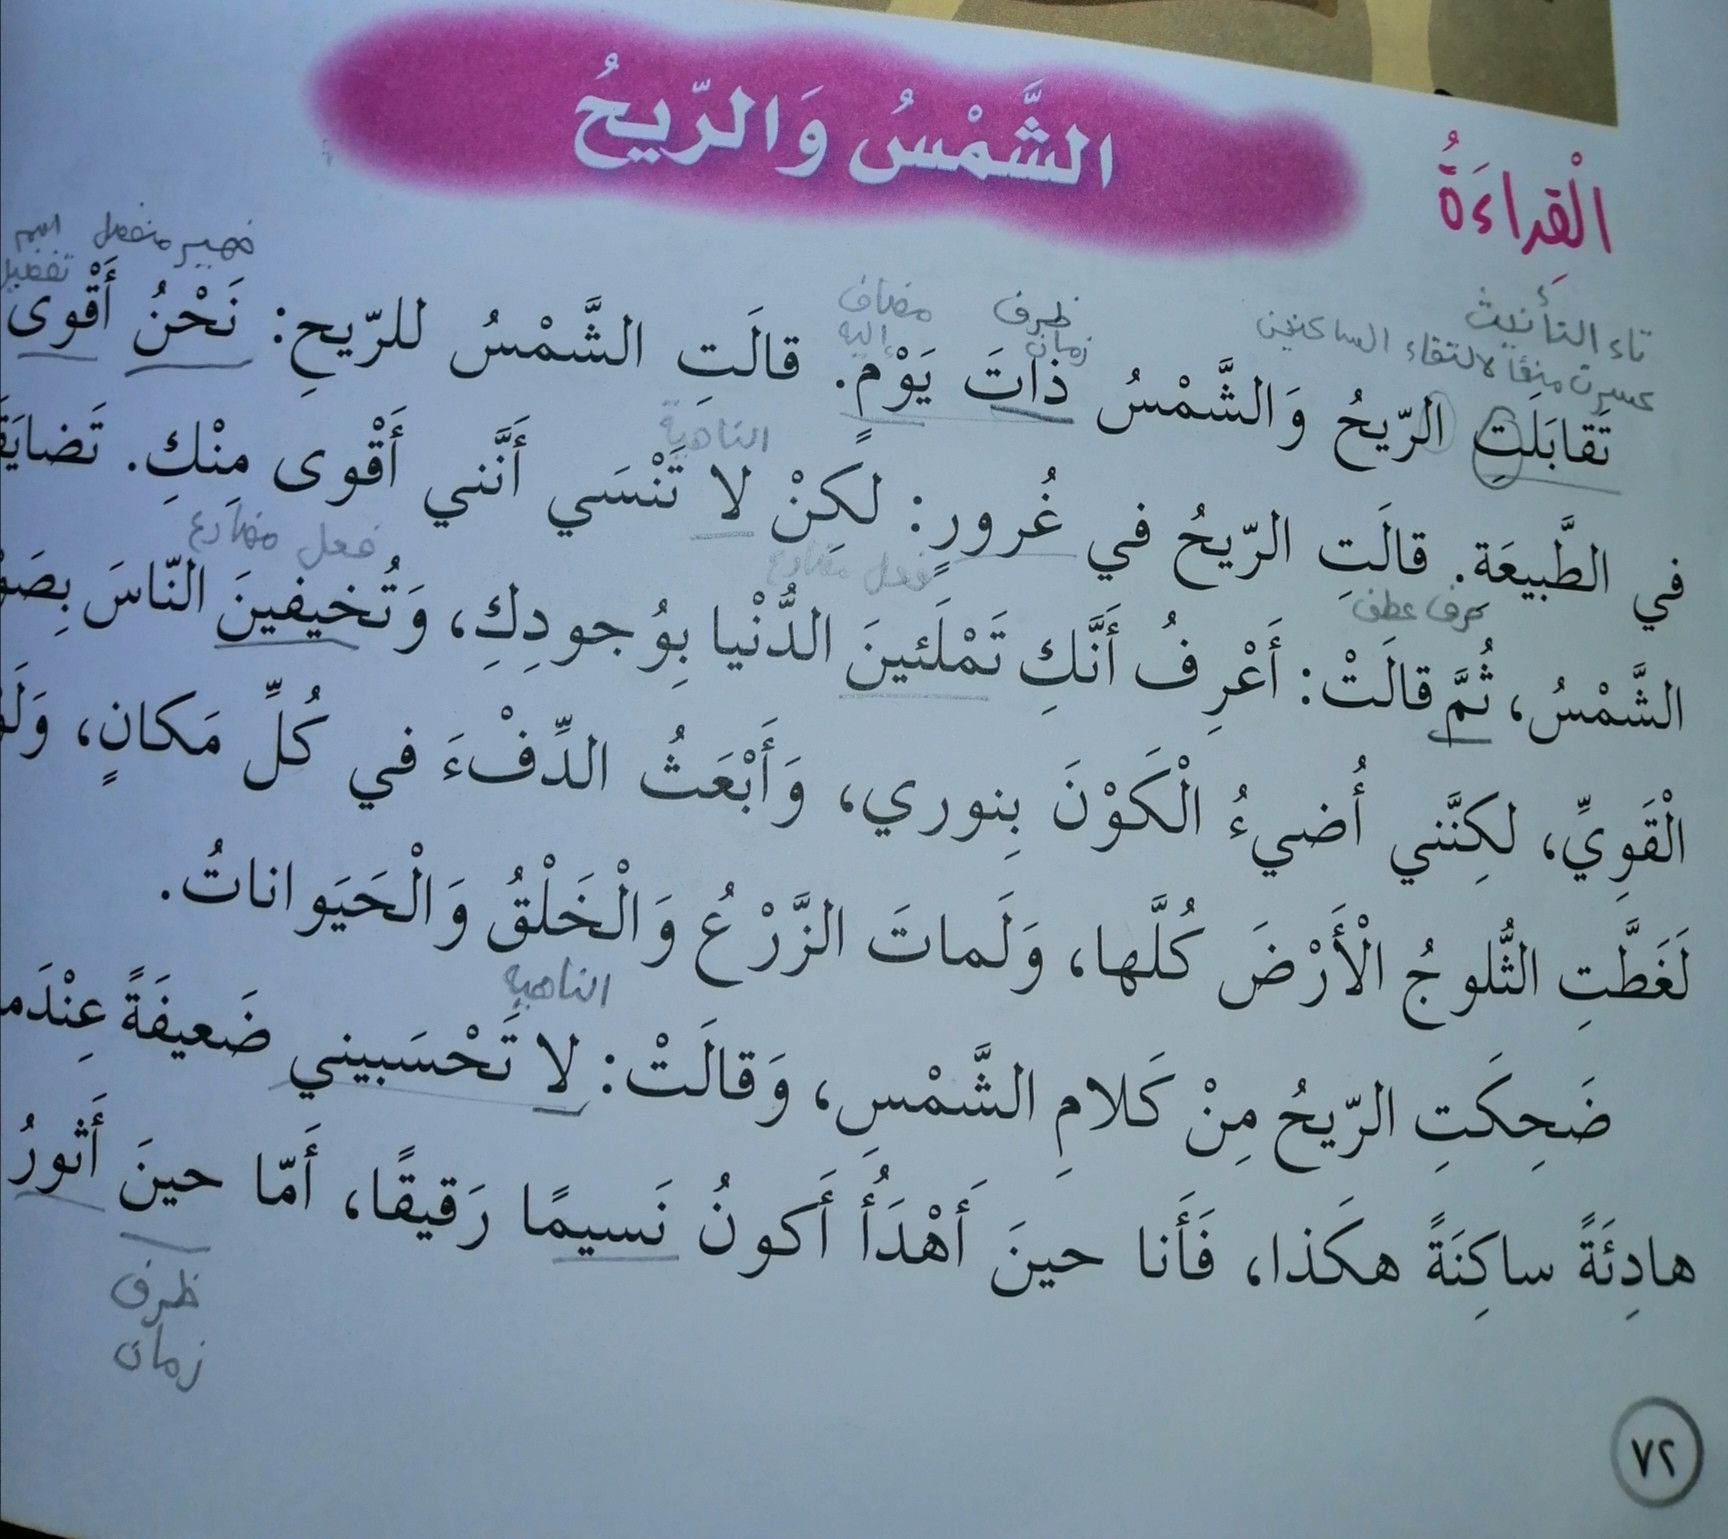 الْقِراءَةُ
الشَّمْسُ وَالرّيحُ
تاء التأنيث
كسرت منعًا لالتقاء الساكنين
ظرف زمان
مضاف إليه
ضمير منفصل
اسم تفضيل
تَقابَلَتِ الرّيحُ وَالشَّمْسُ ذاتَ يَوْمٍ. قالَتِ الشَّمْسُ للرّيحِ: نَحْنُ أَقْوى
الناهية
في الطَّبيعَةِ. قالَتِ الرّيحُ في غُرورٍ: لكِنْ لا تَنْسَي أَنَّني أَقْوى مِنْكِ.
حرف عطف
فعل مضارع
فعل مضارع
الشَّمْسُ، ثُمَّ قالَتْ: أَعْرِفُ أَنَّكِ تَمْلَئينَ الدُّنْيا بِوُجودِكِ، وَتُخيفينَ النّاسَ
الْقَوِيِّ، لكِنَّني أُضيءُ الْكَوْنَ بِنوري، وَأَبْعَثُ الدِّفْءَ في كُلِّ مَكانٍ،
لَغَطَّتِ الثُّلوجُ الْأَرْضَ كُلَّها، وَلَماتَ الزَّرْعُ وَالْخَلْقُ وَالْحَيَواناتُ.
الناهية
ضَحِكَتِ الرّيحُ مِنْ كَلامِ الشَّمْسِ، وَقالَتْ: لا تَحْسَبيني ضَعيفَةً
هادِئَةً ساكِنَةً هكَذا، فَأَنا حينَ أَهْدَأُ أَكونُ نَسيمًا رَقيقًا، أَمّا حينَ أَثورُ
ظرف
زمان
٧٢